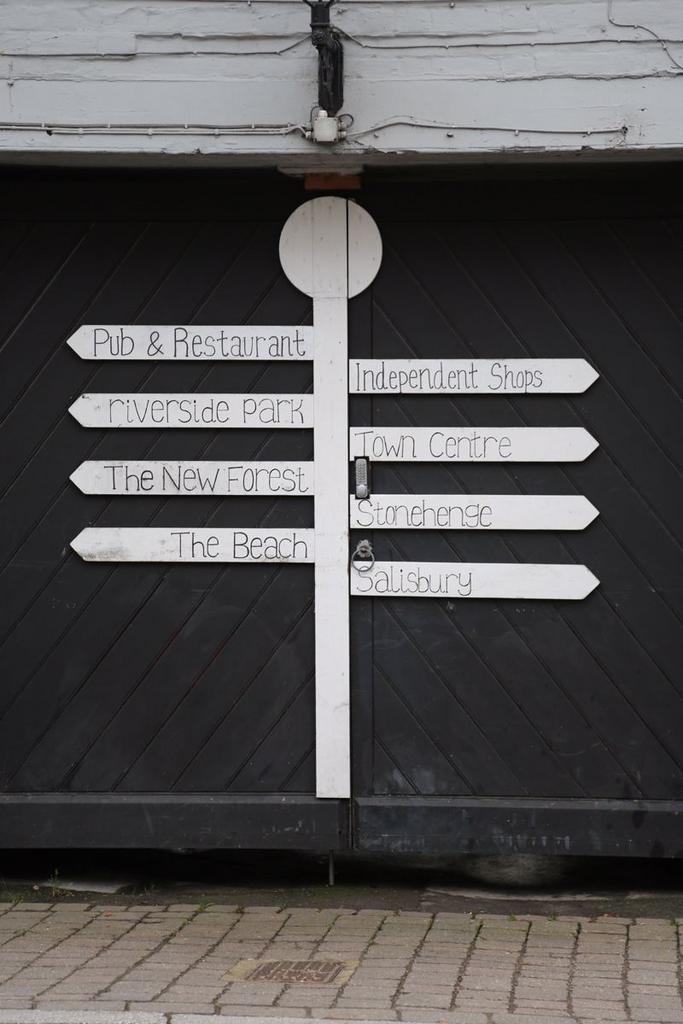 Pub & Restaurant
Independent Shops
riverside park
Town Centre
The New Forest
Stonehenge
The Beach
Salisbury